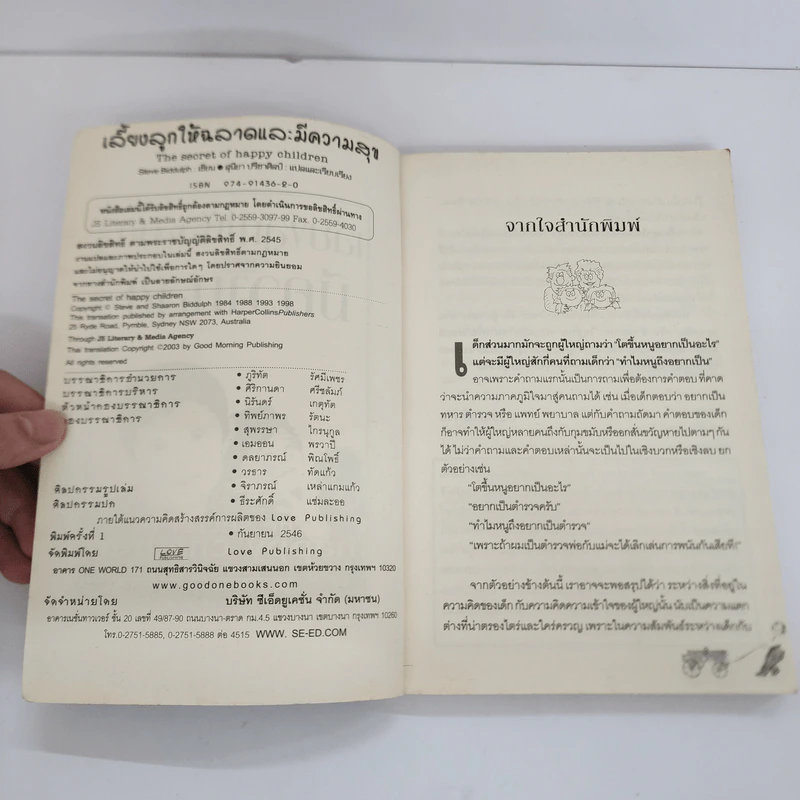 เลี้ยงลูกให้ฉลาดและมีความสุข
The secret of happy children
Steve Biddulph : เขียน ● สุนิยา ปรีชาศิลป์ : แปลและเรียบเรียง
ISBN 974-91436-2-0
หนังสือเล่มนี้ได้รับลิขสิทธิ์ถูกต้องตามกฎหมาย โดยดำเนินการขอลิขสิทธิ์ผ่านทาง
JS Literary & Media Agency Tel. 0-2559-3097-99 Fax. 0-2559-4030
สงวนลิขสิทธิ์ ตามพระราชบัญญัติลิขสิทธิ์ พ.ศ. 2545
งานแปลและภาพประกอบในเล่มนี้ สงวนลิขสิทธิ์ตามกฎหมาย
และไม่อนุญาตให้นำไปใช้เพื่อการใดๆ โดยปราศจากความยินยอม
จากทางสำนักพิมพ์ เป็นลายลักษณ์อักษร
The secret of happy children
Copyright © Steve and Shaaron Biddulph 1984 1988 1993 1998
This translation published by arrangement with HarperCollinsPublishers
25 Ryde Road, Pymble, Sydney NSW 2073, Australia
Through JS Literary & Media Agency
Thai translation Copyright ©2003 by Good Morning Publishing
All rights reserved
บรรณาธิการอำนวยการ • ภูริทัต รัศมีเพชร
บรรณาธิการบริหาร • ศิริกานดา ศรีชลัมภ์
หัวหน้ากองบรรณาธิการ • นิรันดร์ เกตุทัต
กองบรรณาธิการ • ทิพย์ภาพร รัตนะ
• สุพรรษา ไกรนุกูล
• เอมออน พรวาปี
• ดลยาภรณ์ พิณโพธิ์
• วรธาร ทัดแก้ว
ศิลปกรรมรูปเล่ม • จิราภรณ์ เหล่าแกมแก้ว
ศิลปกรรมปก • ธีระศักดิ์ แช่มละออ
ภายใต้แนวความคิดสร้างสรรค์การผลิตของ Love Publishing
พิมพ์ครั้งที่ 1 • กันยายน 2546
จัดพิมพ์โดย LOVE Love Publishing
อาคาร ONE WORLD 171 ถนนสุทธิสารวินิจฉัย แขวงสามเสนนอก เขตห้วยขวาง กรุงเทพฯ 10320
www.goodonebooks.com
จัดจำหน่ายโดย บริษัท ซีเอ็ดยูเคชั่น จำกัด (มหาชน)
อาคารเนชั่นทาวเวอร์ ชั้น 20 เลขที่ 49/87-90 ถนนบางนา-ตราด กม.4.5 แขวงบางนา เขตบางนา กรุงเทพฯ 10260
โทร.0-2751-5885, 0-2751-5888 ต่อ 4515 WWW. SE-ED.COM
จากใจสำนักพิมพ์
เด็กส่วนมากมักจะถูกผู้ใหญ่ถามว่า "โตขึ้นหนูอยากเป็นอะไร"
แต่จะมีผู้ใหญ่สักกี่คนที่ถามเด็กว่า "ทำไมหนูถึงอยากเป็น"
อาจเพราะคำถามแรกนั้นเป็นการถามเพื่อต้องการคำตอบ ที่คาด
ว่าจะนำความภาคภูมิใจมาสู่คนถามได้ เช่น เมื่อเด็กตอบว่า อยากเป็น
ทหาร ตำรวจ หรือ แพทย์ พยาบาล แต่กับคำถามถัดมา คำตอบของเด็ก
ก็อาจทำให้ผู้ใหญ่หลายคนถึงกับกุมขมับหรือออกสั่นขวัญหายไปตามๆ กัน
ได้ ไม่ว่าคำถามและคำตอบเหล่านั้นจะเป็นไปในเชิงบวกหรือเชิงลบ ยก
ตัวอย่างเช่น
"โตขึ้นหนูอยากเป็นอะไร"
"อยากเป็นตำรวจครับ"
"ทำไมหนูถึงอยากเป็นตำรวจ"
"เพราะถ้าผมเป็นตำรวจพ่อกับแม่จะได้เลิกเล่นการพนันกันเสียที!"
จากตัวอย่างข้างต้นนี้ เราอาจจะพอสรุปได้ว่า ระหว่างสิ่งที่อยู่ใน
ความคิดของเด็ก กับความคิดความเข้าใจของผู้ใหญ่นั้น นับเป็นความแตก
ต่างที่น่าตรองไตร่และใคร่ครวญ เพราะในความสัมพันธ์ระหว่างเด็กกับ